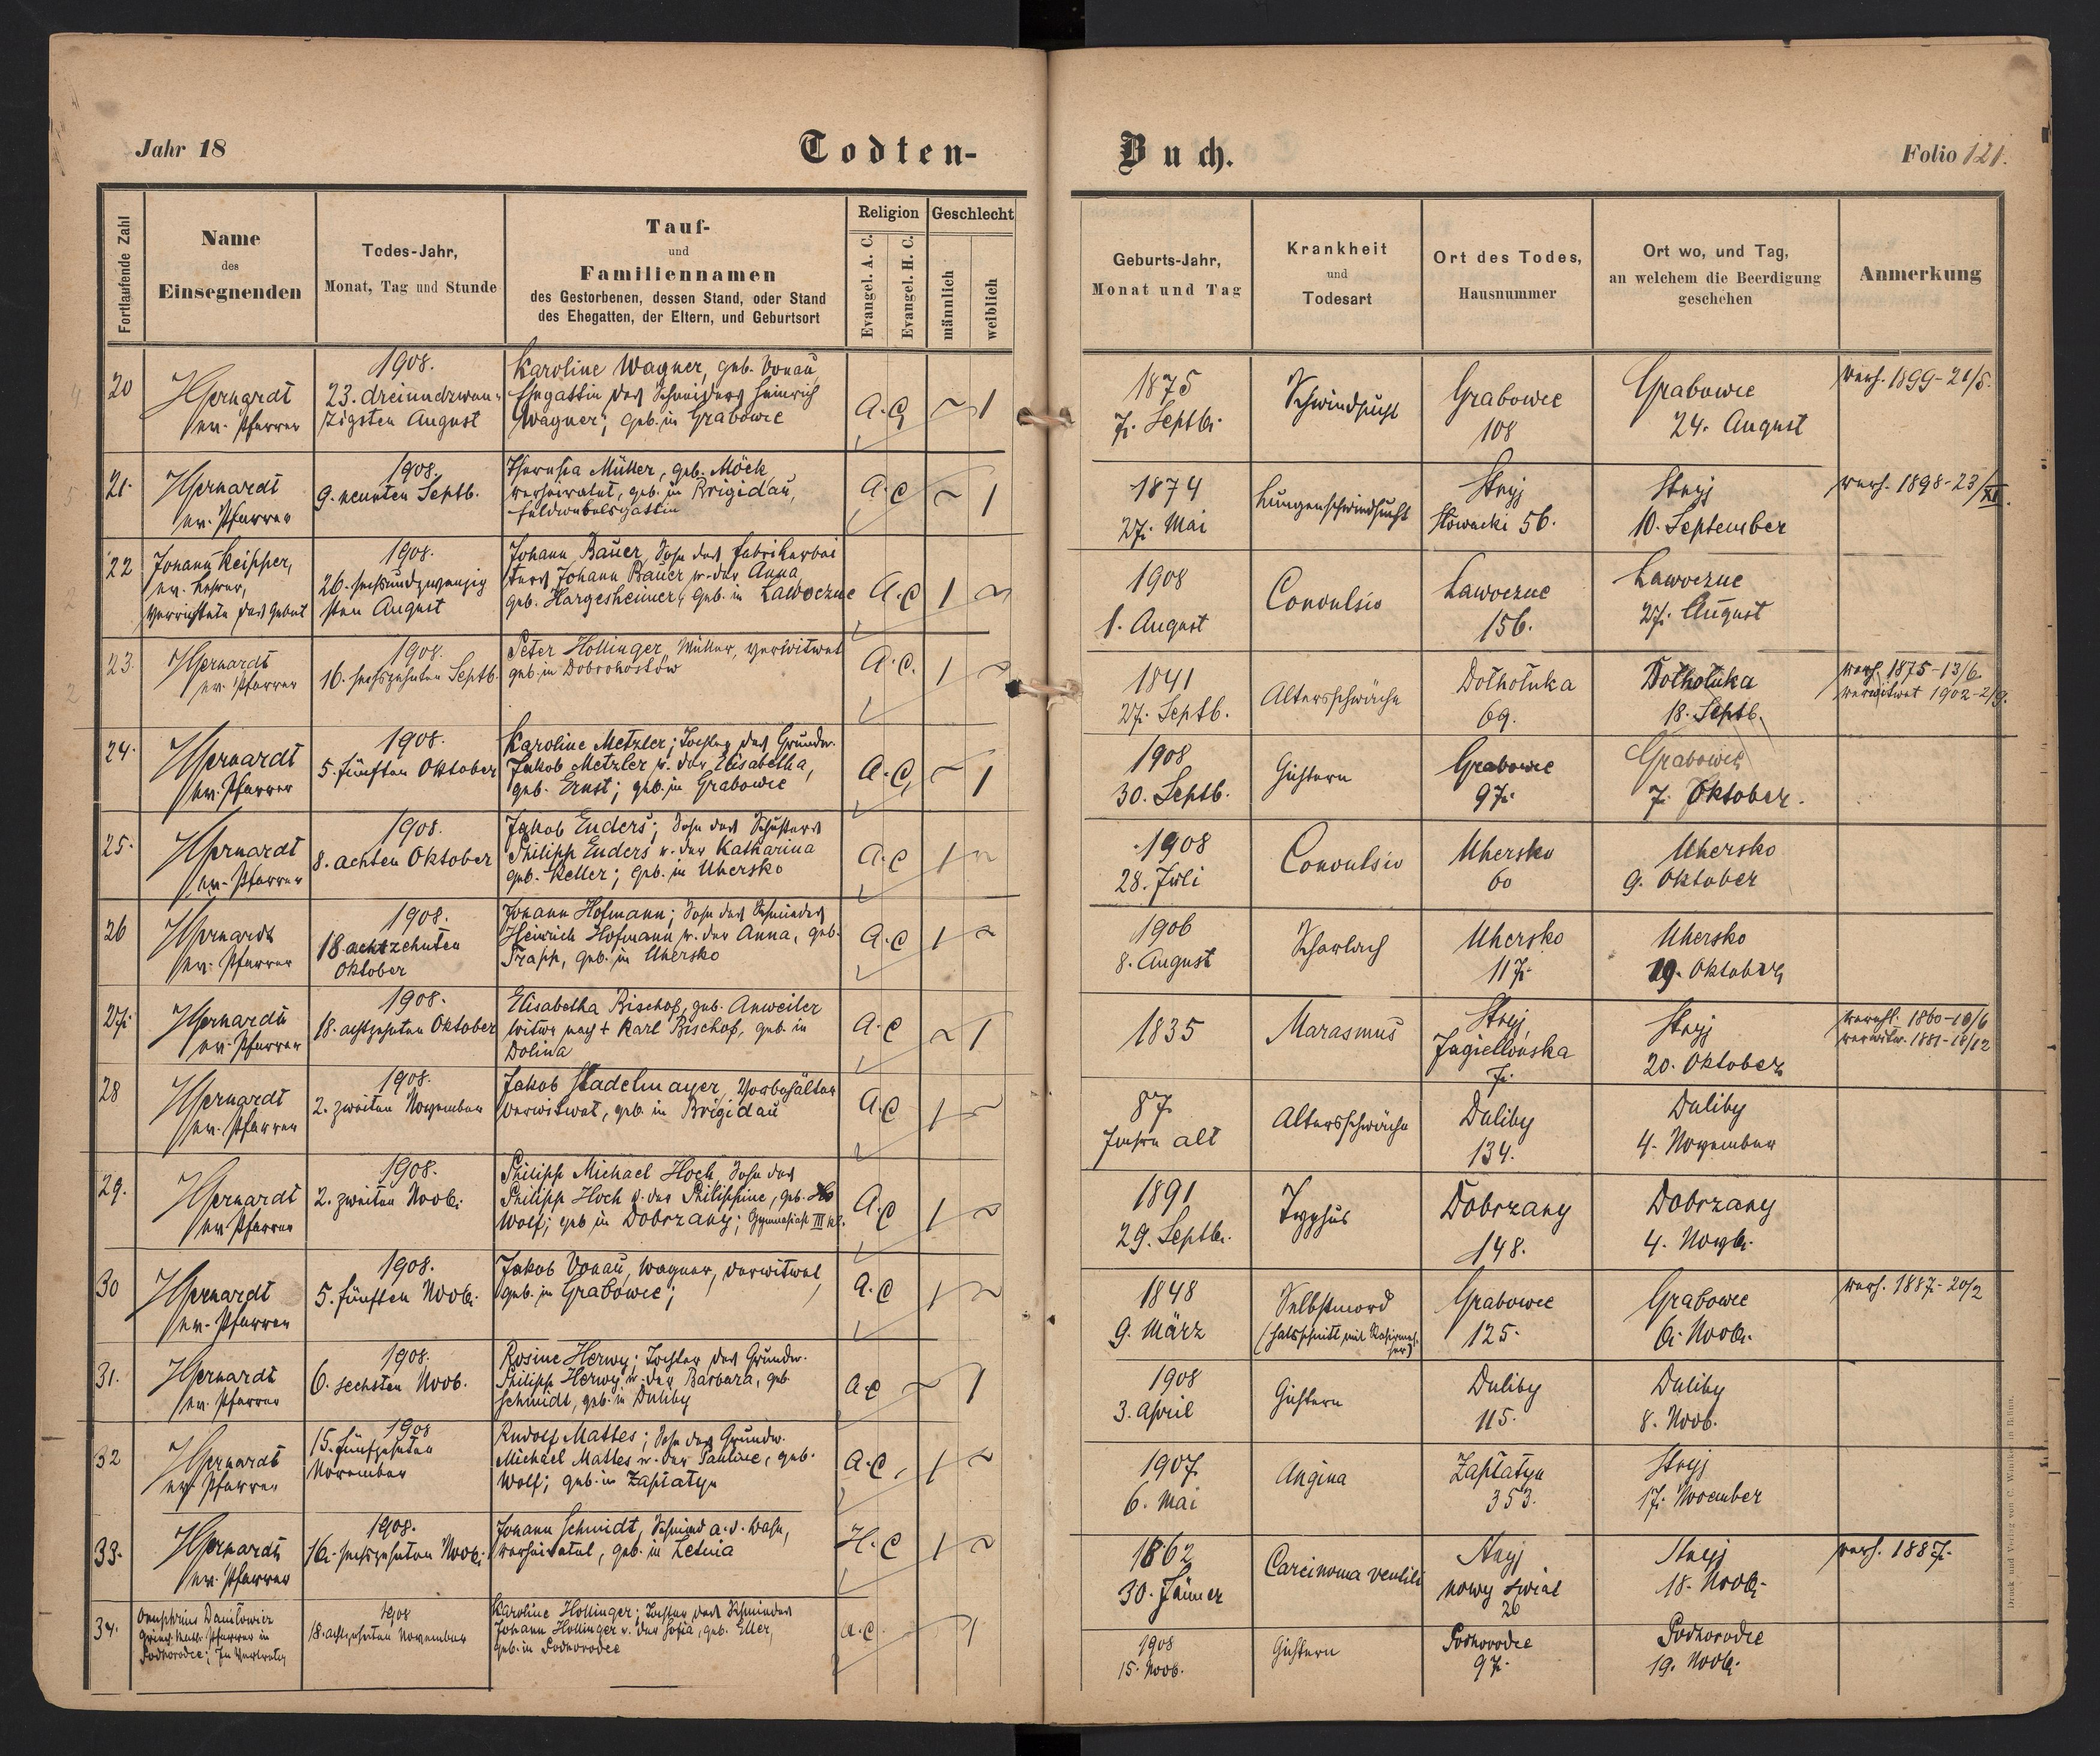 Jahr 18
Todten-
Buch.
Folio 121.
Fortlaufende Zahl
Name
des
Einsegnenden
Todes-Jahr,
Monat, Tag und Stunde
Tauf-
und
Familiennamen
des Gestorbenen, dessen Stand, oder Stand
des Ehegatten, der Eltern, und Geburtsort
Religion
Evangel. A. C.
Evangel. H. C.
Geschlecht
männlich
weiblich
Geburts-Jahr,
Monat und Tag
Krankheit
und
Todesart
Ort des Todes,
Hausnummer
Ort wo, und Tag,
an welchem die Beerdigung
geschehen
Anmerkung
20
Gerhardt
ev. Pfarrer
1908.
23. dreiundzwan-
zigsten August
Karoline Wagner, geb. Donau
Ehegattin des Schneiders Heinrich
Wagner; geb. in Grabowce
A. C
1
1875
7. Septbr.
Schwindsucht
Grabowce
108
Grabowce
24. August
verh. 1899-21/5.
21.
Gerhardt
ev. Pfarrer
1908.
9. neunten Septb.
Müller, geb. Möck
verheiratet, geb. in Brigidau,
Feldwebelsgattin
A. C
1
1874
27. Mai
Lungenschwindsucht
Stryj
Słowacki 56.
Stryj
10. September
verh. 1898-23/XI.
22
Johann Keipper,
ev. Lehrer,
verrichtete das Gebet
1908.
26. sechsundzwanzig
sten August
Johann Bauer, Sohn des Fabrikarbei
ters Johann Bauer u. der Anna
geb. Hargesheimer; geb. in Lawoczne
A. C
1
1908
1. August
Convulsio
Lawoczne
156.
Lawoczne
27. August
23.
Gerhardt
ev. Pfarrer
1908.
16. sechszehnten Septb.
Peter Hollinger, Müller, verwitwet
geb. in Dobrohostów
A. C.
1
1841
27. Septb.
Altersschwäche
Dołhołuka
69.
Dołhołuka
18. Septb.
verh. 1875-13/6.
verwitwet 1902-2/9.
24.
Gerhardt
ev. Pfarrer
1908.
5. fünften Oktober
Karoline Metzler; Tochter des Grundw.
Jakob Metzler u. der Elisabetha,
geb. Ernst; geb. in Grabowce
A. C,
1
1908
30. Septb.
Gichtern
Grabowce
97.
Grabowce
7. Oktober.
25.
Gerhardt
ev. Pfarrer
1908.
8. achten Oktober
Jakob Enders; Sohn des Schusters
Philipp Enders u. der Katharina
geb. Keller; geb. in Uhersko
A. C
1
1908
28. Juli
Convulsio
Uhersko
60
Uhersko
9. Oktober
26
Gerhardt
ev. Pfarrer
1908.
18 achtzehnten
Oktober
Johann Hofmann; Sohn des Schmiedes
Heinrich Hofmann u. der Anna, geb.
Trapp, geb. in Uhersko
A. C
1
1906
8. August
Scharlach
Uhersko
117.
Uhersko
19. Oktober
27.
Gerhardt
ev. Pfarrer
1908.
18. achtzehnten Oktober
Elisabetha Bischof, geb. Anweiler
Witwe nach + Karl Bischof, geb. in
Dolina
A. C
1
1835
Marasmus
Stryj,
Jagiellonska
7.
Stryj
20. Oktober
verehl. 1860-10/6
verwitw. 1881-18/12
28
Gerhardt
ev. Pfarrer
1908.
2. zweiten November
Jakob Stadelmayer, Vorbehälter
verwitwet, geb. in Brigidau
A. C
1
87
Jahre alt
Altersschwäche
Duliby
134.
Duliby
4. November
29.
Gerhardt
ev. Pfarrer
1908.
2. zweiten Novb.
Philipp Michael Hoch, Sohn des
Philipp Hoch u. der Philippine, geb.
Wolf; geb in Dobrzany; Gymnasiast III Kl.
A. C
1
1891
29. Septbr.
Typhus
Dobrzany
148.
Dobrzany
4. Novbr.
30
Gerhardt
ev. Pfarrer
1908.
5. fünften Novb.
Jakob Donau, Wagner, verwitwet,
geb. in Grabowce;
A. C
1
1848
9. März
Selbstmord
(Halsschnitt mit Rasirmes-
ser)
Grabowce
125.
Grabowce
6. Novb.
verh. 1887-20/2
31.
Gerhardt
ev. Pfarrer
1908.
6. sechsten Novb.
Rosine Herwy; Tochter des Grundw.
Philipp Herwy u. der Barbara, geb.
Schmidt, geb. in Duliby
A. C
1
1908
3. April
Gichtern
Duliby
115.
Duliby
8. Novb.
32
Gerhardt
ev. Pfarrer
1908
15. fünfzehnten
November
Rudolf Mattes; Sohn des Grundw.
Michael Mattes u. der Pauline, geb.
Wolf; geb. in Zapłatyn
A. C.
1
1907
6. Mai
Angina
Zapłatyn
353.
Stryj
17. November
33.
Gerhardt
ev. Pfarrer
1908.
16. sechszehnten Novb.
Johann Schmidt, Schmied a. d. Bahn,
verheiratet, geb. in Letnia
H. C
1
1862
30. Jänner
Carcinoma
Stryj
nowy świat
26
Stryj
18. Novb.
verh. 1887.
34.
Onuphrius Daniłowicz
Pfarrer in
Podhorodce; in Vertretung
1908
18. achtzehnten November
Karoline Hollinger; Tochter des Schmiedes
Johann Hollinger u. der Sofia, geb. Eller,
geb. in Podhorodce
A. C.
1
1908
15. Novb.
Gichtern
Podhorodce
97.
Podhorodce
19. Novb.
Druck und Verlag von C. Winiker in Brünn.